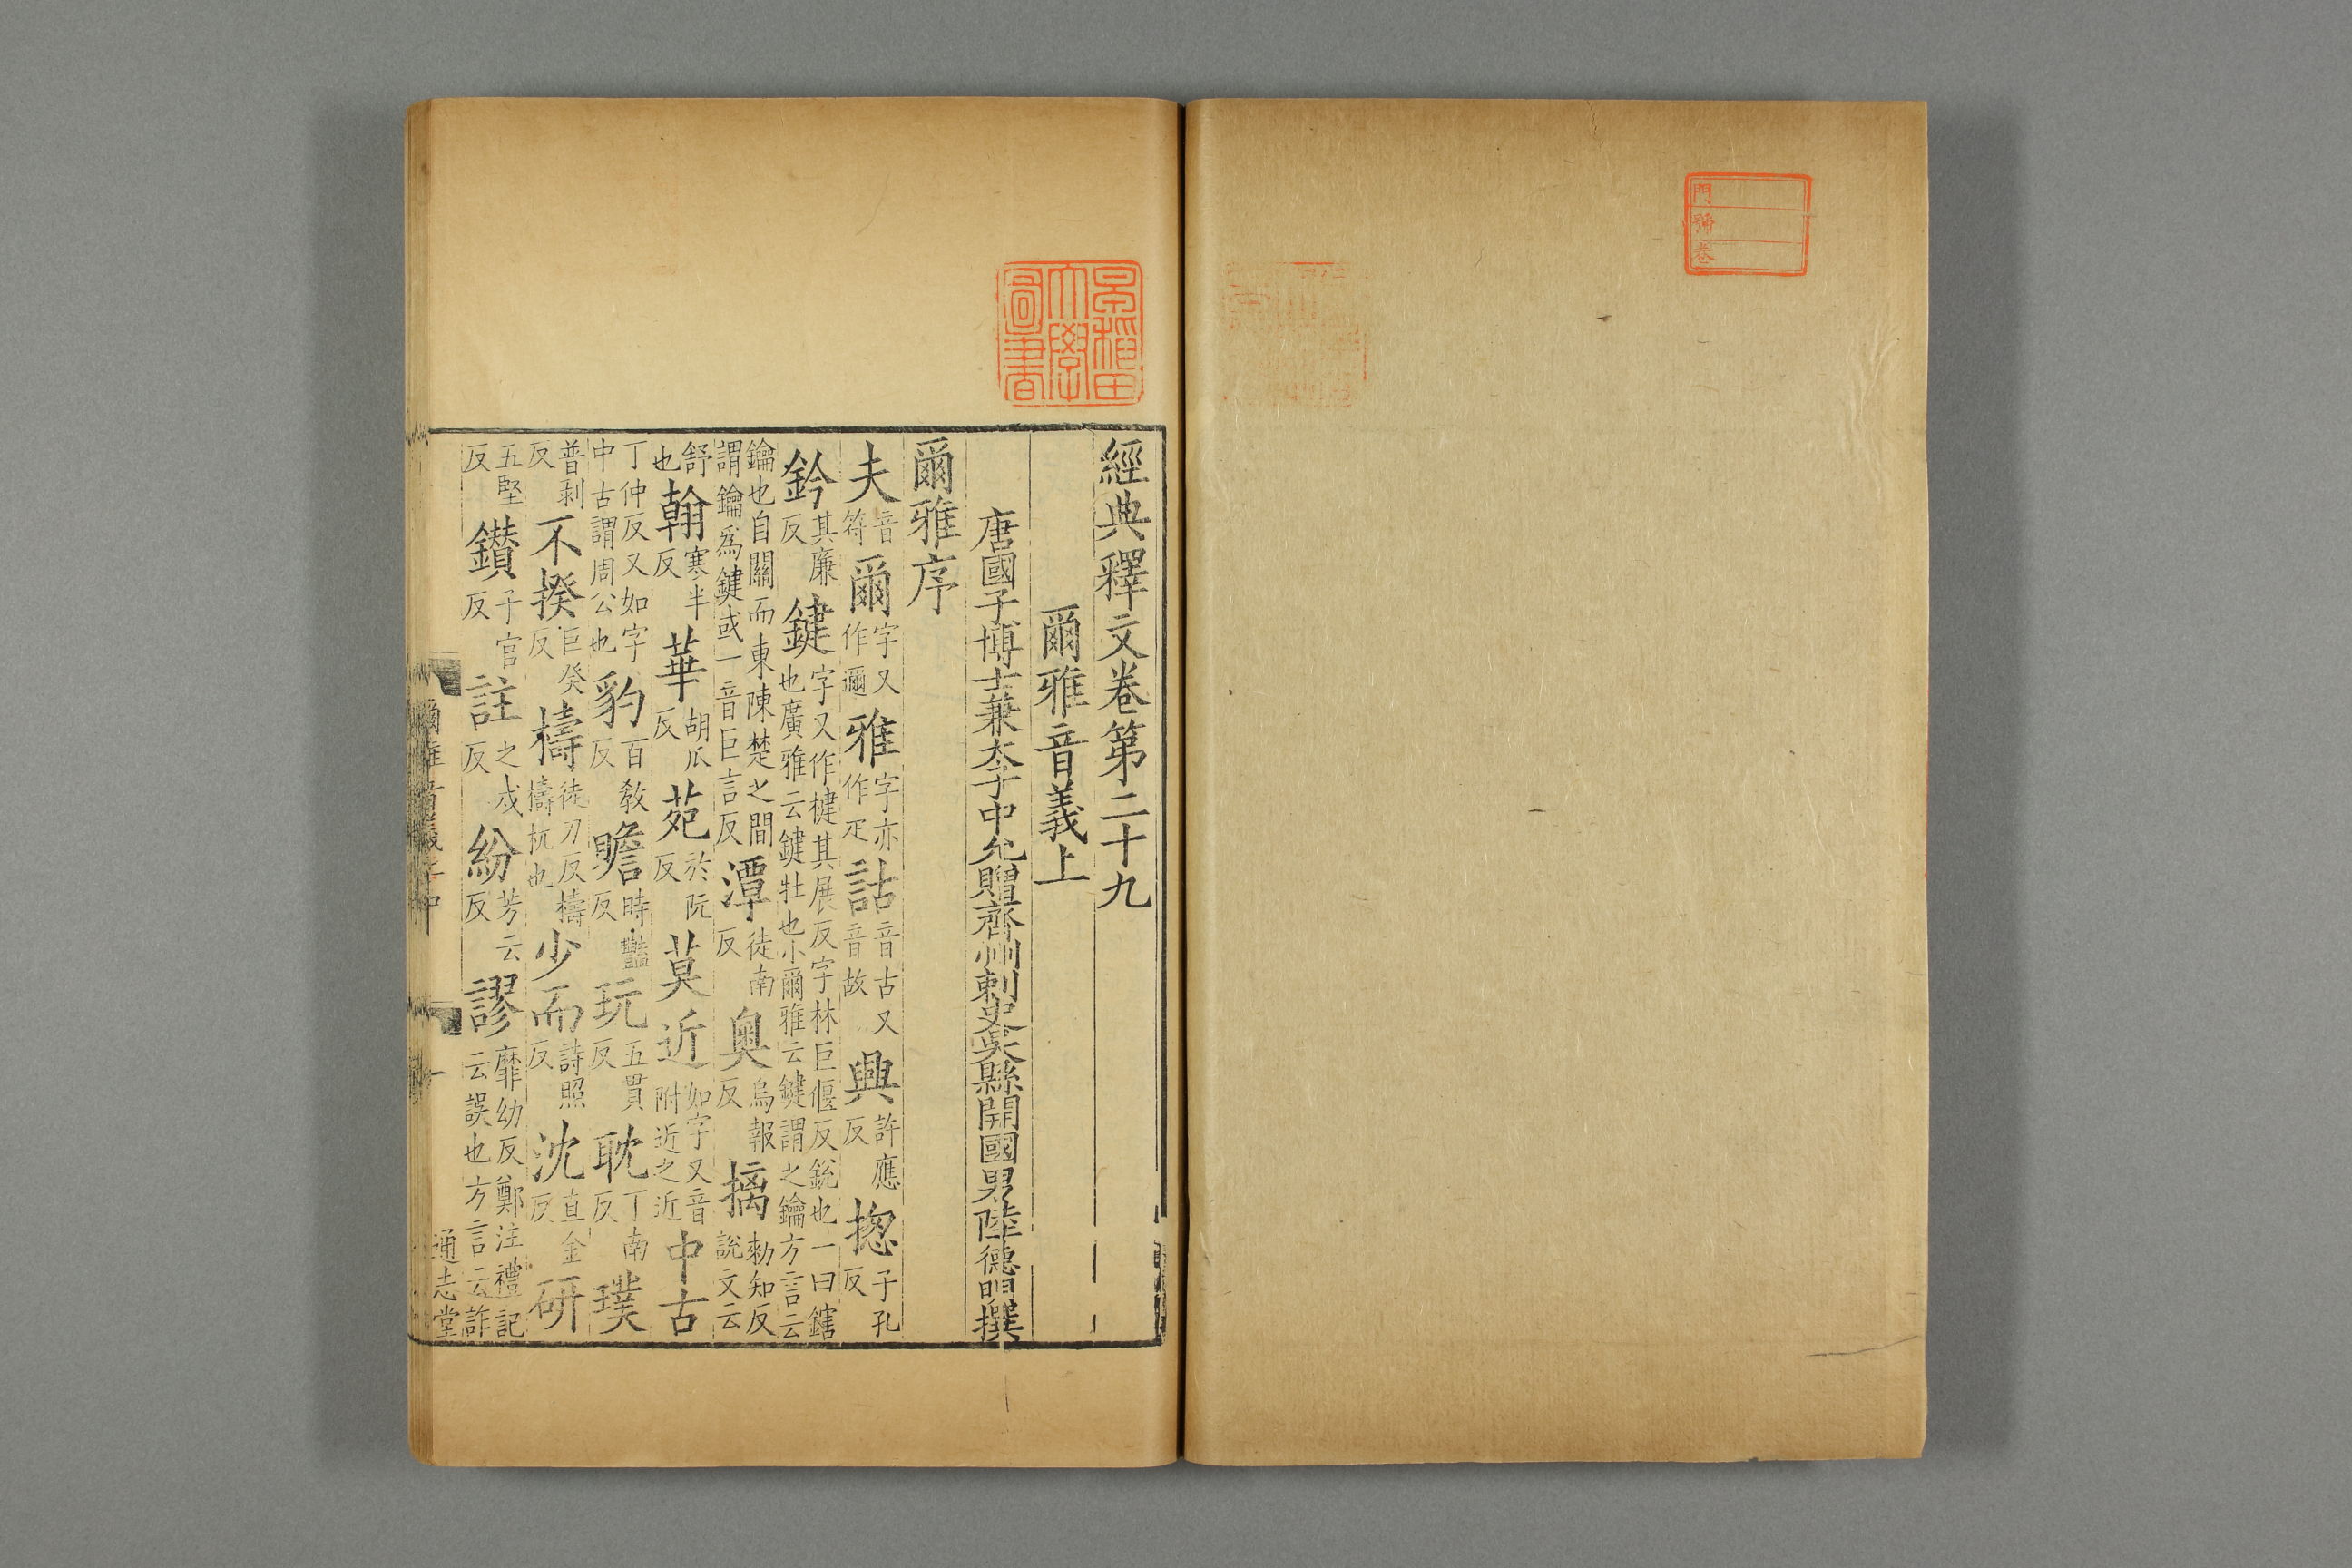 門
號
卷
早稻田
大學
圖書
經典釋文卷第二十九
爾雅音義上
唐國子博士兼太子中允贈齊州刺史吳縣開國男陸德明撰
爾雅序
夫音符爾字又作邇雅字亦作疋詁音古又音故興許應反揔子孔反
鈐其廉反鍵字又作楗其展反字林巨偃反鈗也一曰鎋也廣雅云鍵牡也小爾雅云鍵謂之鑰方言云
鑰也自關而東陳楚之間謂鑰爲鍵或一音巨言反潭徒南反奥烏報反摛勑知反說文云
舒也翰寒半反華胡瓜反苑於阮反莫近如字又音附近之近中古
丁仲反又如字中古謂周公也豹百教反瞻時豔反玩五貫反耽丁南反璞
普剥反不揆巨癸反檮徒刀反檮檮杌也少而詩照反沈直金反研
五堅反鑚子官反註之戍反紛芳云反謬靡幼反鄭注禮記云誤也方言云詐
一
通志堂